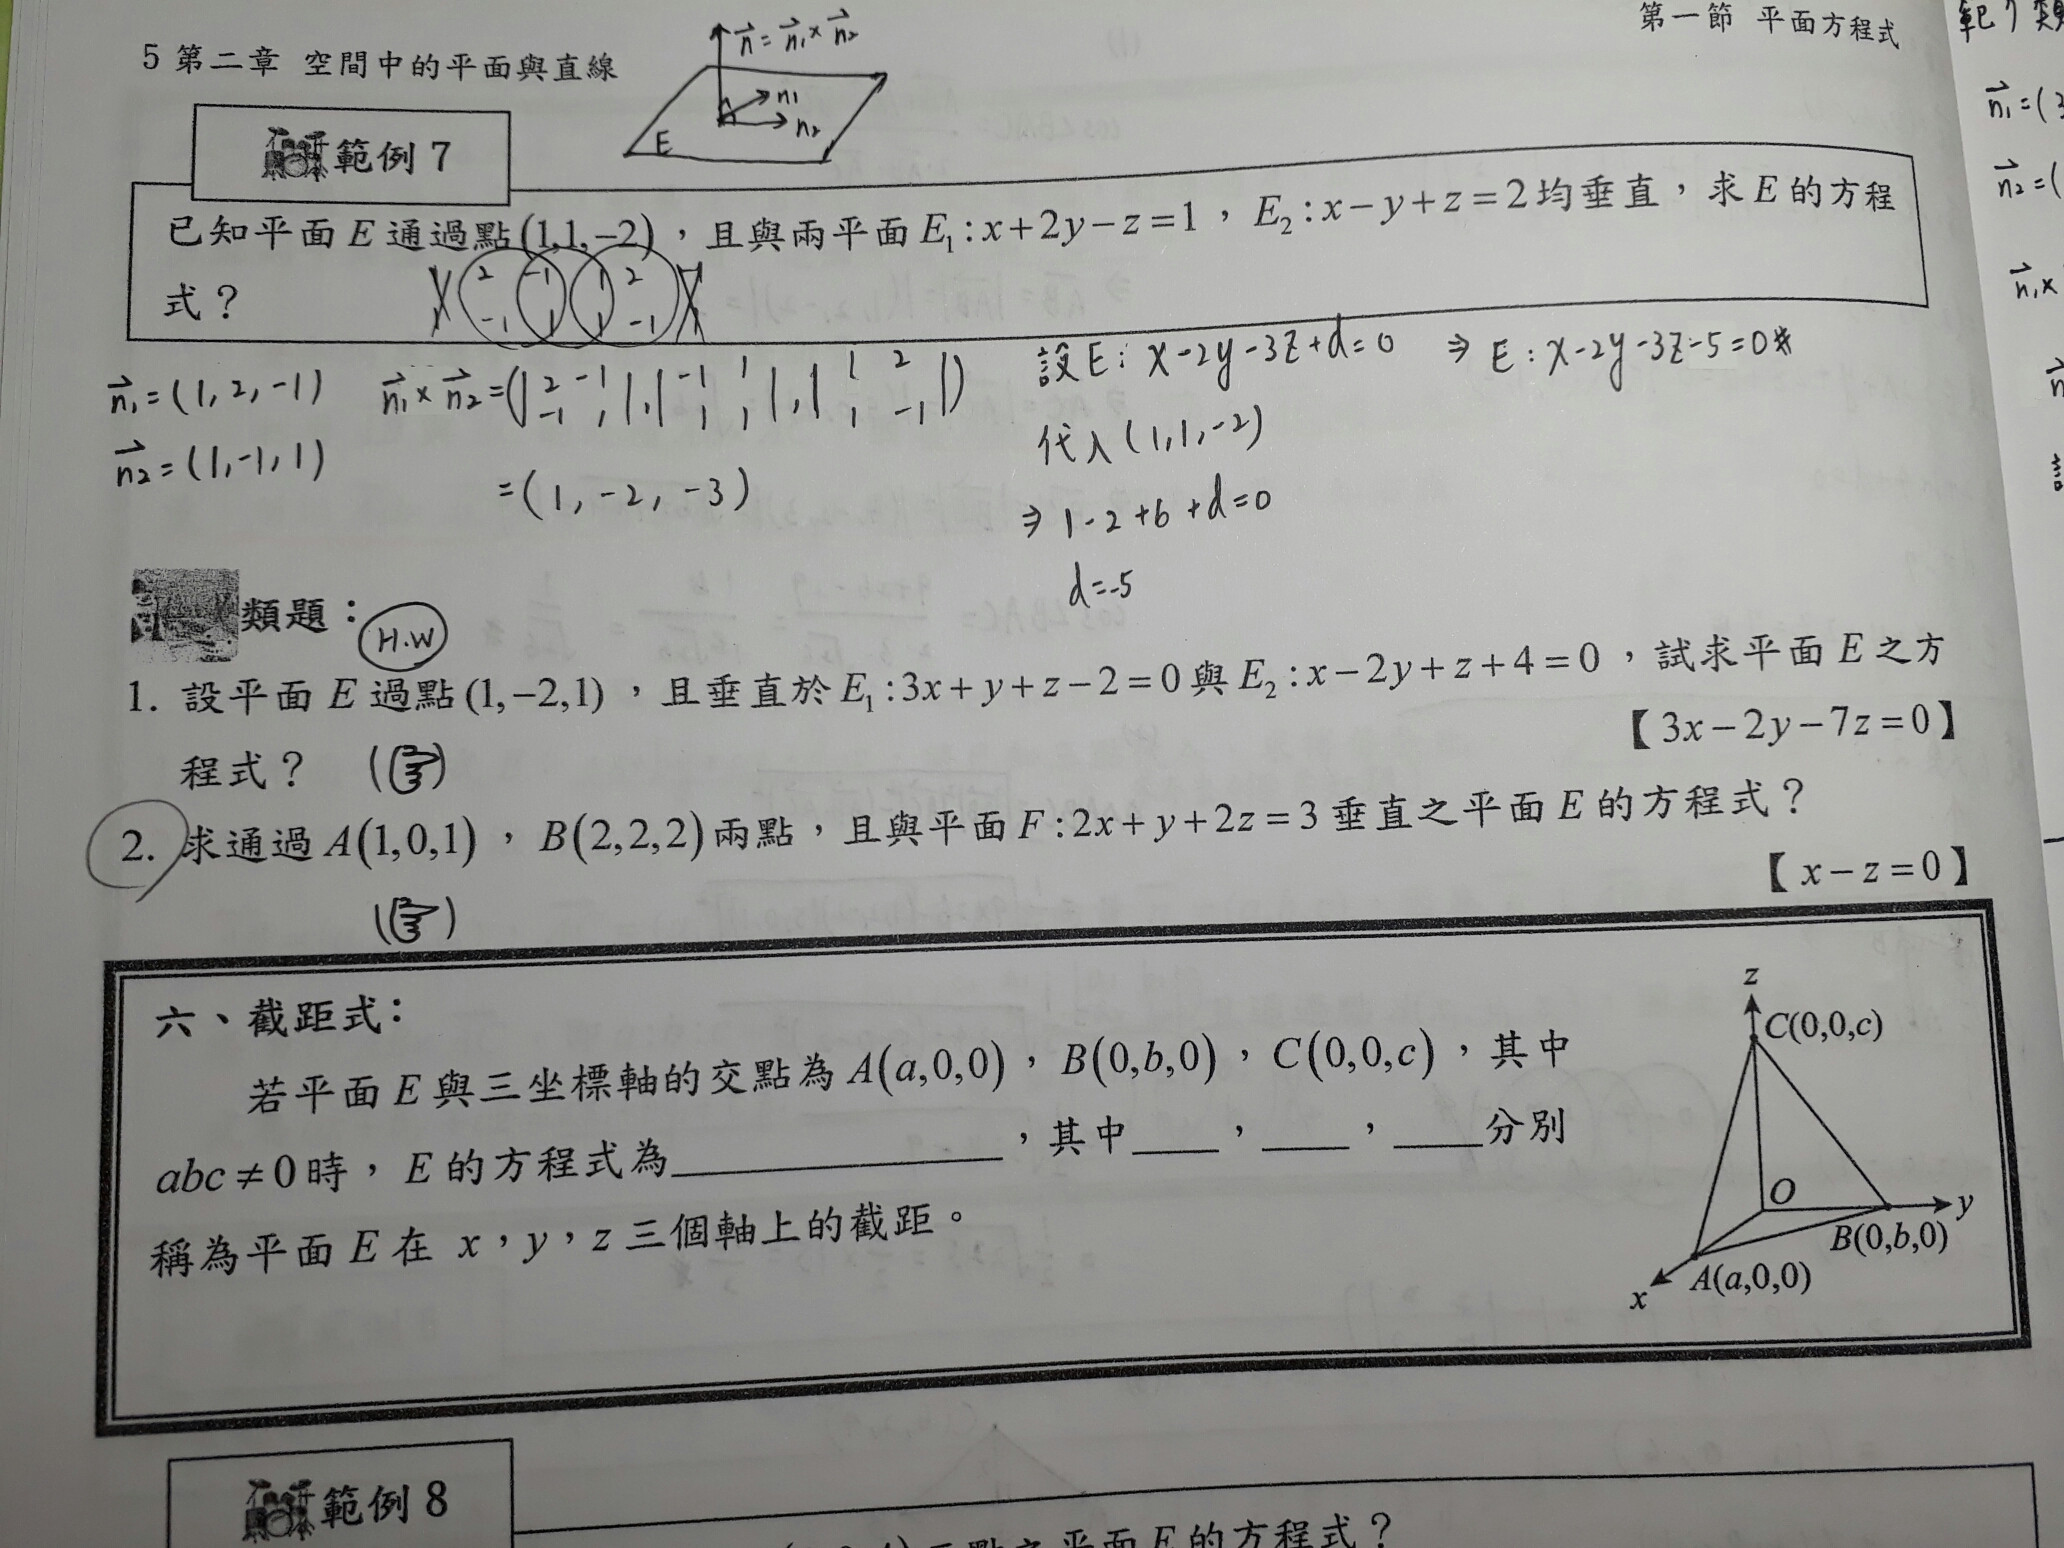 5 第二章 空間中的平面與直線
第一節 平面方程式
n⃗ = n⃗₁ × n⃗₂
n₁
n₂
E
範例 7
已知平面 E 通過點(1,1,−2)，且與兩平面 E₁:x+2y−z=1，E₂:x−y+z=2均垂直，求 E 的方程
式？
2 -1 1 2
-1 1 1 -1
n⃗₁=(1, 2, -1)
n⃗₁×n⃗₂=(|2 -1|,|-1 1|,|1 2|)
-1 1 1 1 1 -1
n⃗₂=(1,-1,1)
=(1, -2, -3)
設E: x-2y-3z+d=0 ⇒ E: x-2y-3z-5=0※
代入 (1,1,-2)
⇒ 1-2+6+d=0
d=-5
類題：
H.W
1. 設平面 E 過點(1,−2,1)，且垂直於 E₁:3x+y+z−2=0與 E₂:x−2y+z+4=0，試求平面 E 之方
程式？
【3x−2y−7z=0】
2. 求通過 A(1,0,1)，B(2,2,2)兩點，且與平面 F:2x+y+2z=3垂直之平面 E 的方程式？
【x−z=0】
六、截距式：
若平面 E 與三坐標軸的交點為 A(a,0,0)，B(0,b,0)，C(0,0,c)，其中
abc≠0時，E 的方程式為＿＿＿＿＿＿＿，其中＿＿，＿＿，＿＿分別
稱為平面 E 在 x，y，z 三個軸上的截距。
z
C(0,0,c)
O
y
B(0,b,0)
A(a,0,0)
x
範例 8
平面 E 的方程式？
n⃗₁=(3
n⃗₂=(
n⃗₁×